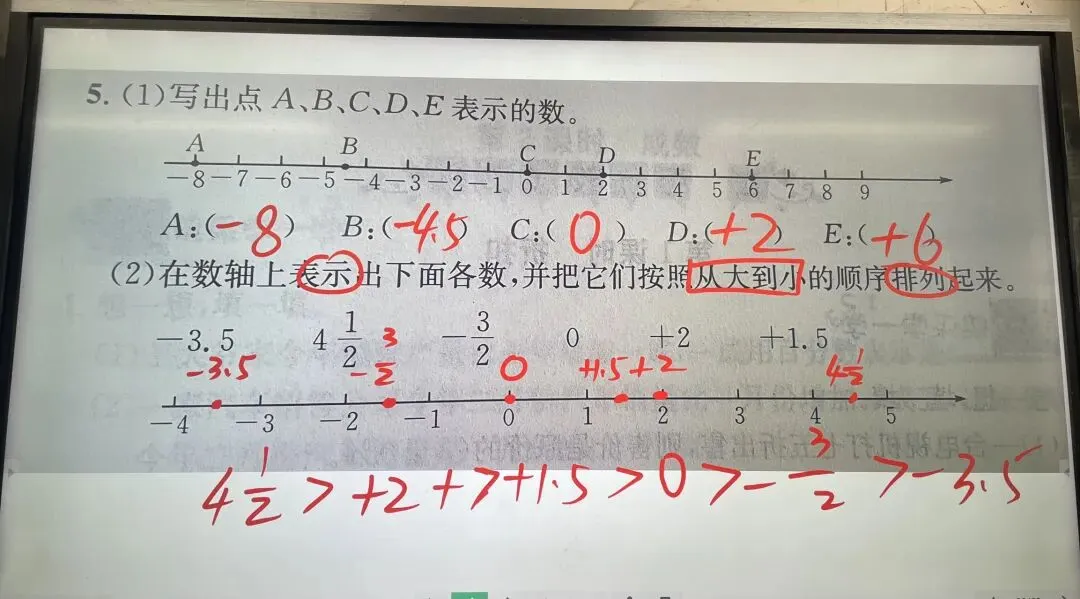 5. (1)写出点 A、B、C、D、E 表示的数。
A B C D E
-8 -7 -6 -5 -4 -3 -2 -1 0 1 2 3 4 5 6 7 8 9
A:(-8) B:(-4.5) C:(0) D:(+2) E:(+6)
(2)在数轴上表示出下面各数,并把它们按照从大到小的顺序排列起来。
-3.5 4 1/2 -3/2 0 +2 +1.5
-3.5 -3/2 0 +1.5 +2 4 1/2
-4 -3 -2 -1 0 1 2 3 4 5
4 1/2 > +2 + > +1.5 > 0 > -3/2 > -3.5